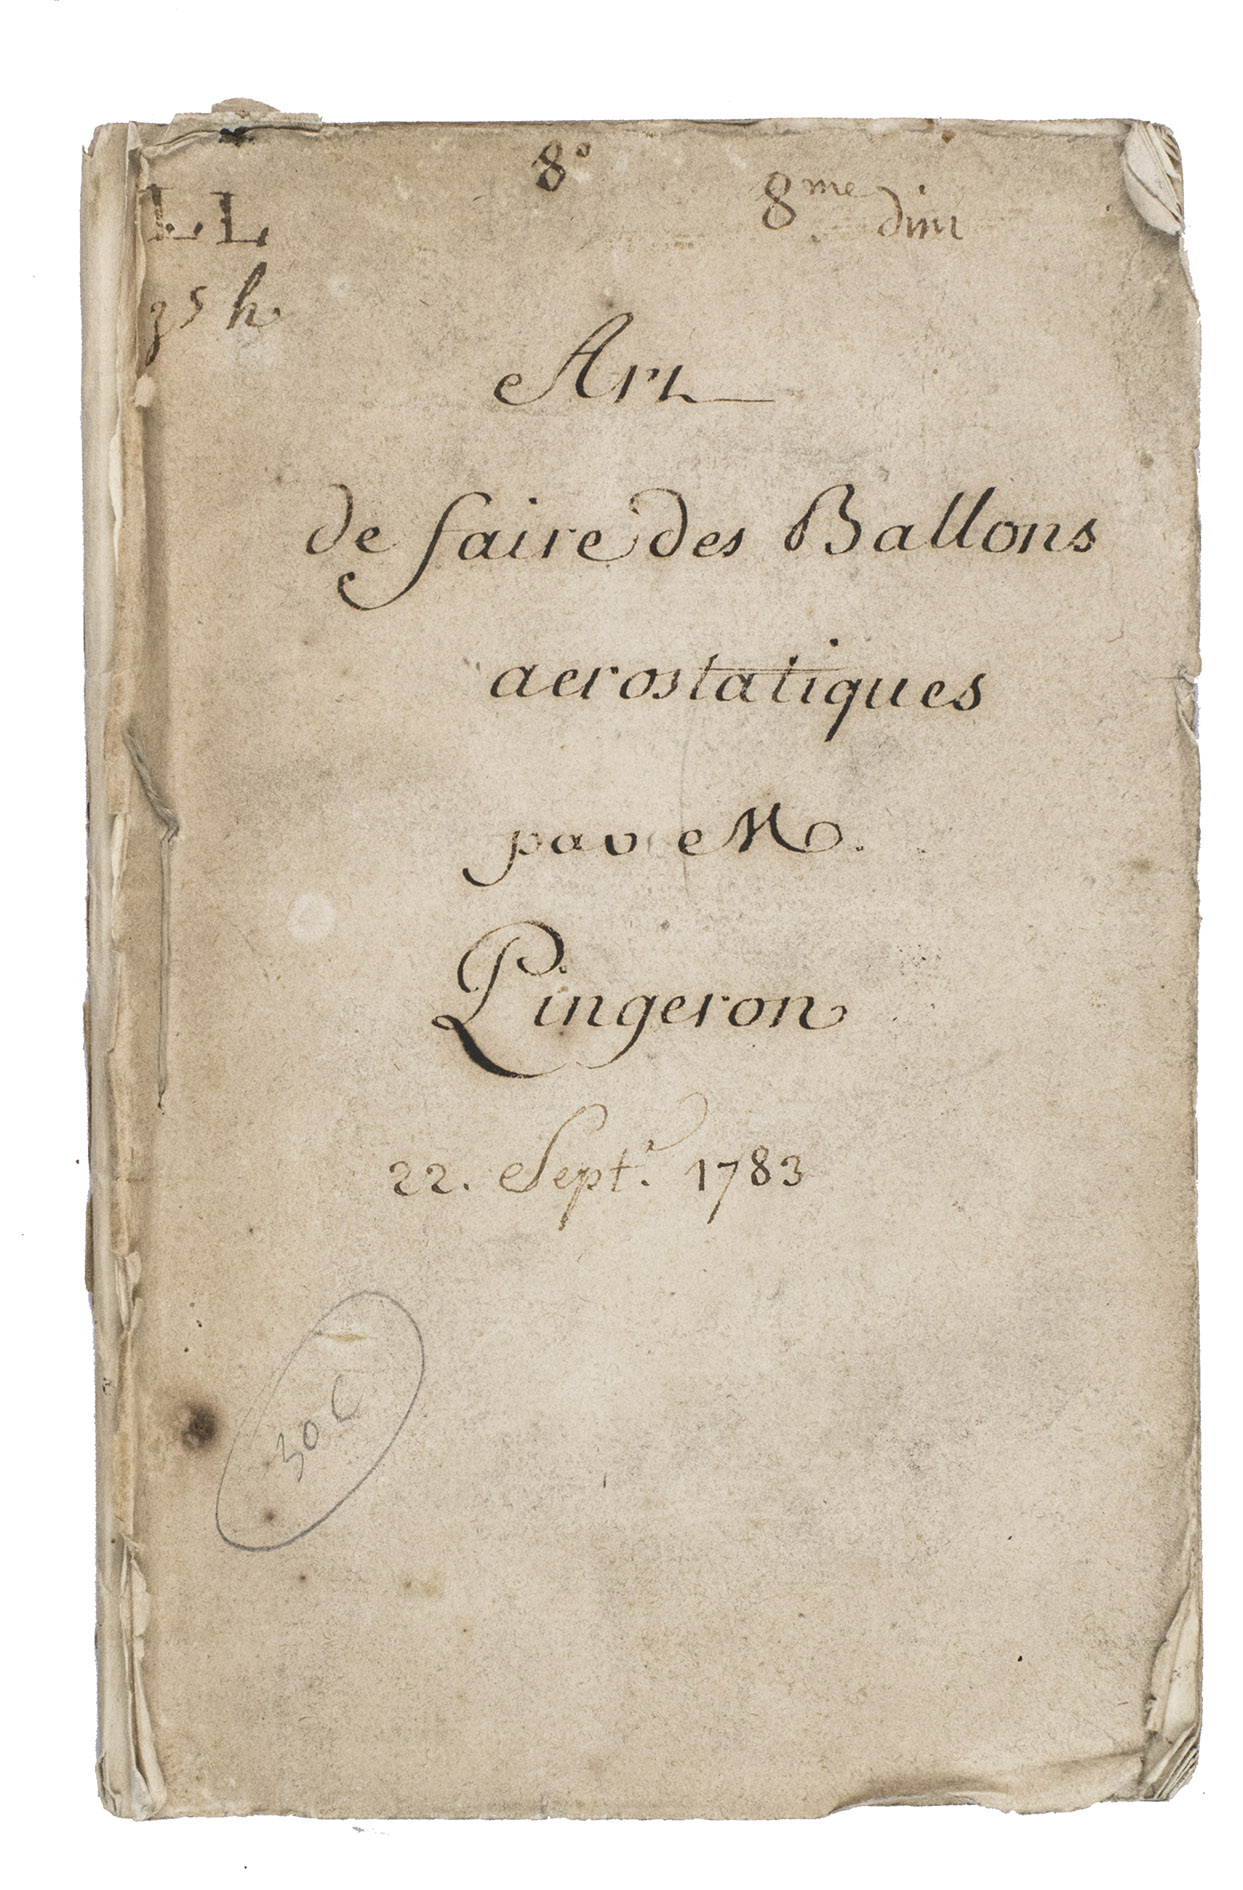 8°
8me
LL
Art
de faire des Ballons
aerostatiques
par M.
Pingeron
22. Septr. 1783